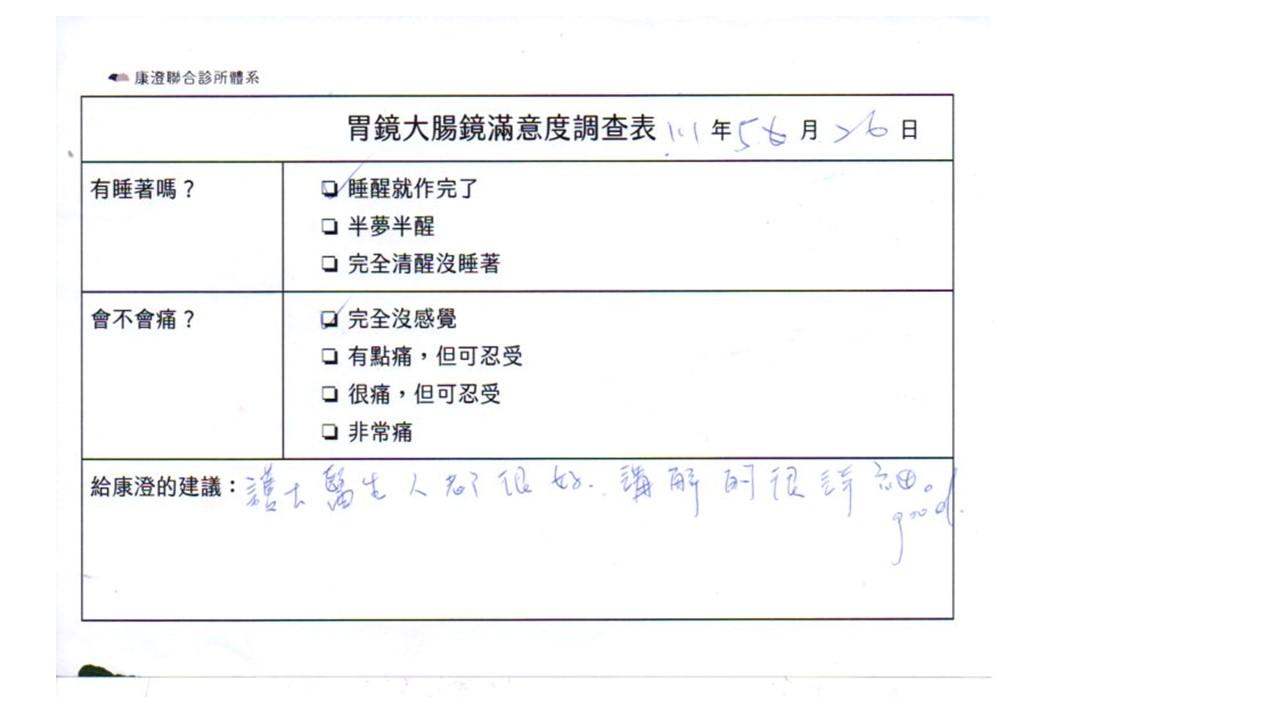 康澄聯合診所體系
胃鏡大腸鏡滿意度調查表 111年5月26日
有睡著嗎？
睡醒就作完了
半夢半醒
完全清醒沒睡著
會不會痛？
完全沒感覺
有點痛，但可忍受
很痛，但可忍受
非常痛
給康澄的建議：護士醫生人都很好.講解的很詳細。
good.